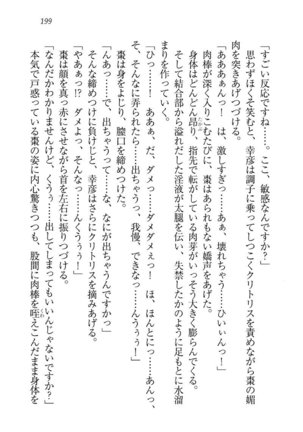 199
「すごい反応ですね……。ここ、敏感なんですか？」
思わずほくそ笑むと、幸彦は調子に乗ってしつこくクリトリスを責めながら棗の媚
肉を突きあげつづける。
「あああぁんっ！　は、激しすぎっ……あぁ、壊れちゃうっ……ひぃぃんっ！」
肉棒が出入りするこむたびに、棗はあられもない嬌声をあげた。
身体はどんどん昂り、指先で転がしている肉芽がいっそう大きく膨らんでくる。
そして結合部から溢れだした淫液が太腿を伝い、失禁したかのように足もとに水溜
まりを作っていく。
「ひっ……！　ああぁ、だ、ダメっ……ダメダメぇっ！　ほ、ほんとにっ……あんっ、
あぁっ、そんなに弄られたらっ……出ちゃうっ、我慢、できなっ……んううぅっ！」
棗は身をよじり、膣口を締めつけた。
「んあっ……で、出ちゃうって……な、なにが出ちゃうんですか？」
そんな締めつけに負けじと、幸彦はさらにクリトリスを摘みあげる。
「やぁっ……!?　ダメよっ、そんなっ……んくううぅっ！」
棗は顔を真っ赤にさせながら首を左右に振りつづける。
「なんだかわかりませんけど、くうぅ……出してしまってもいいんじゃないですか？」
本気で戸惑っている棗の姿に内心驚きつつも、股間に肉棒を咥えこんだまま身体を